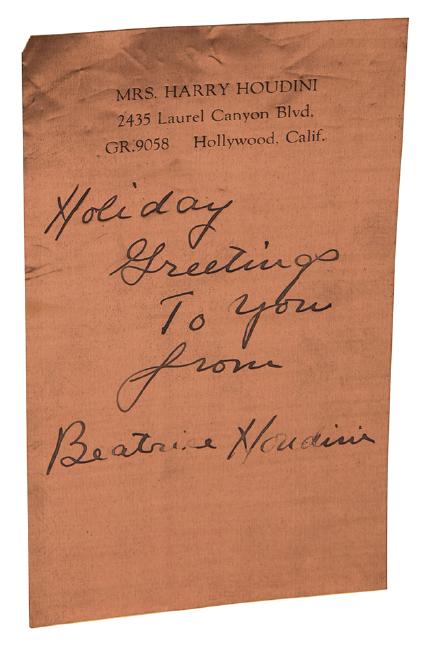 MRS. HARRY HOUDINI
2435 Laurel Canyon Blvd.
GR.9058 Hollywood, Calif.
Holiday
Greetings
To you
from
Beatrice Houdini